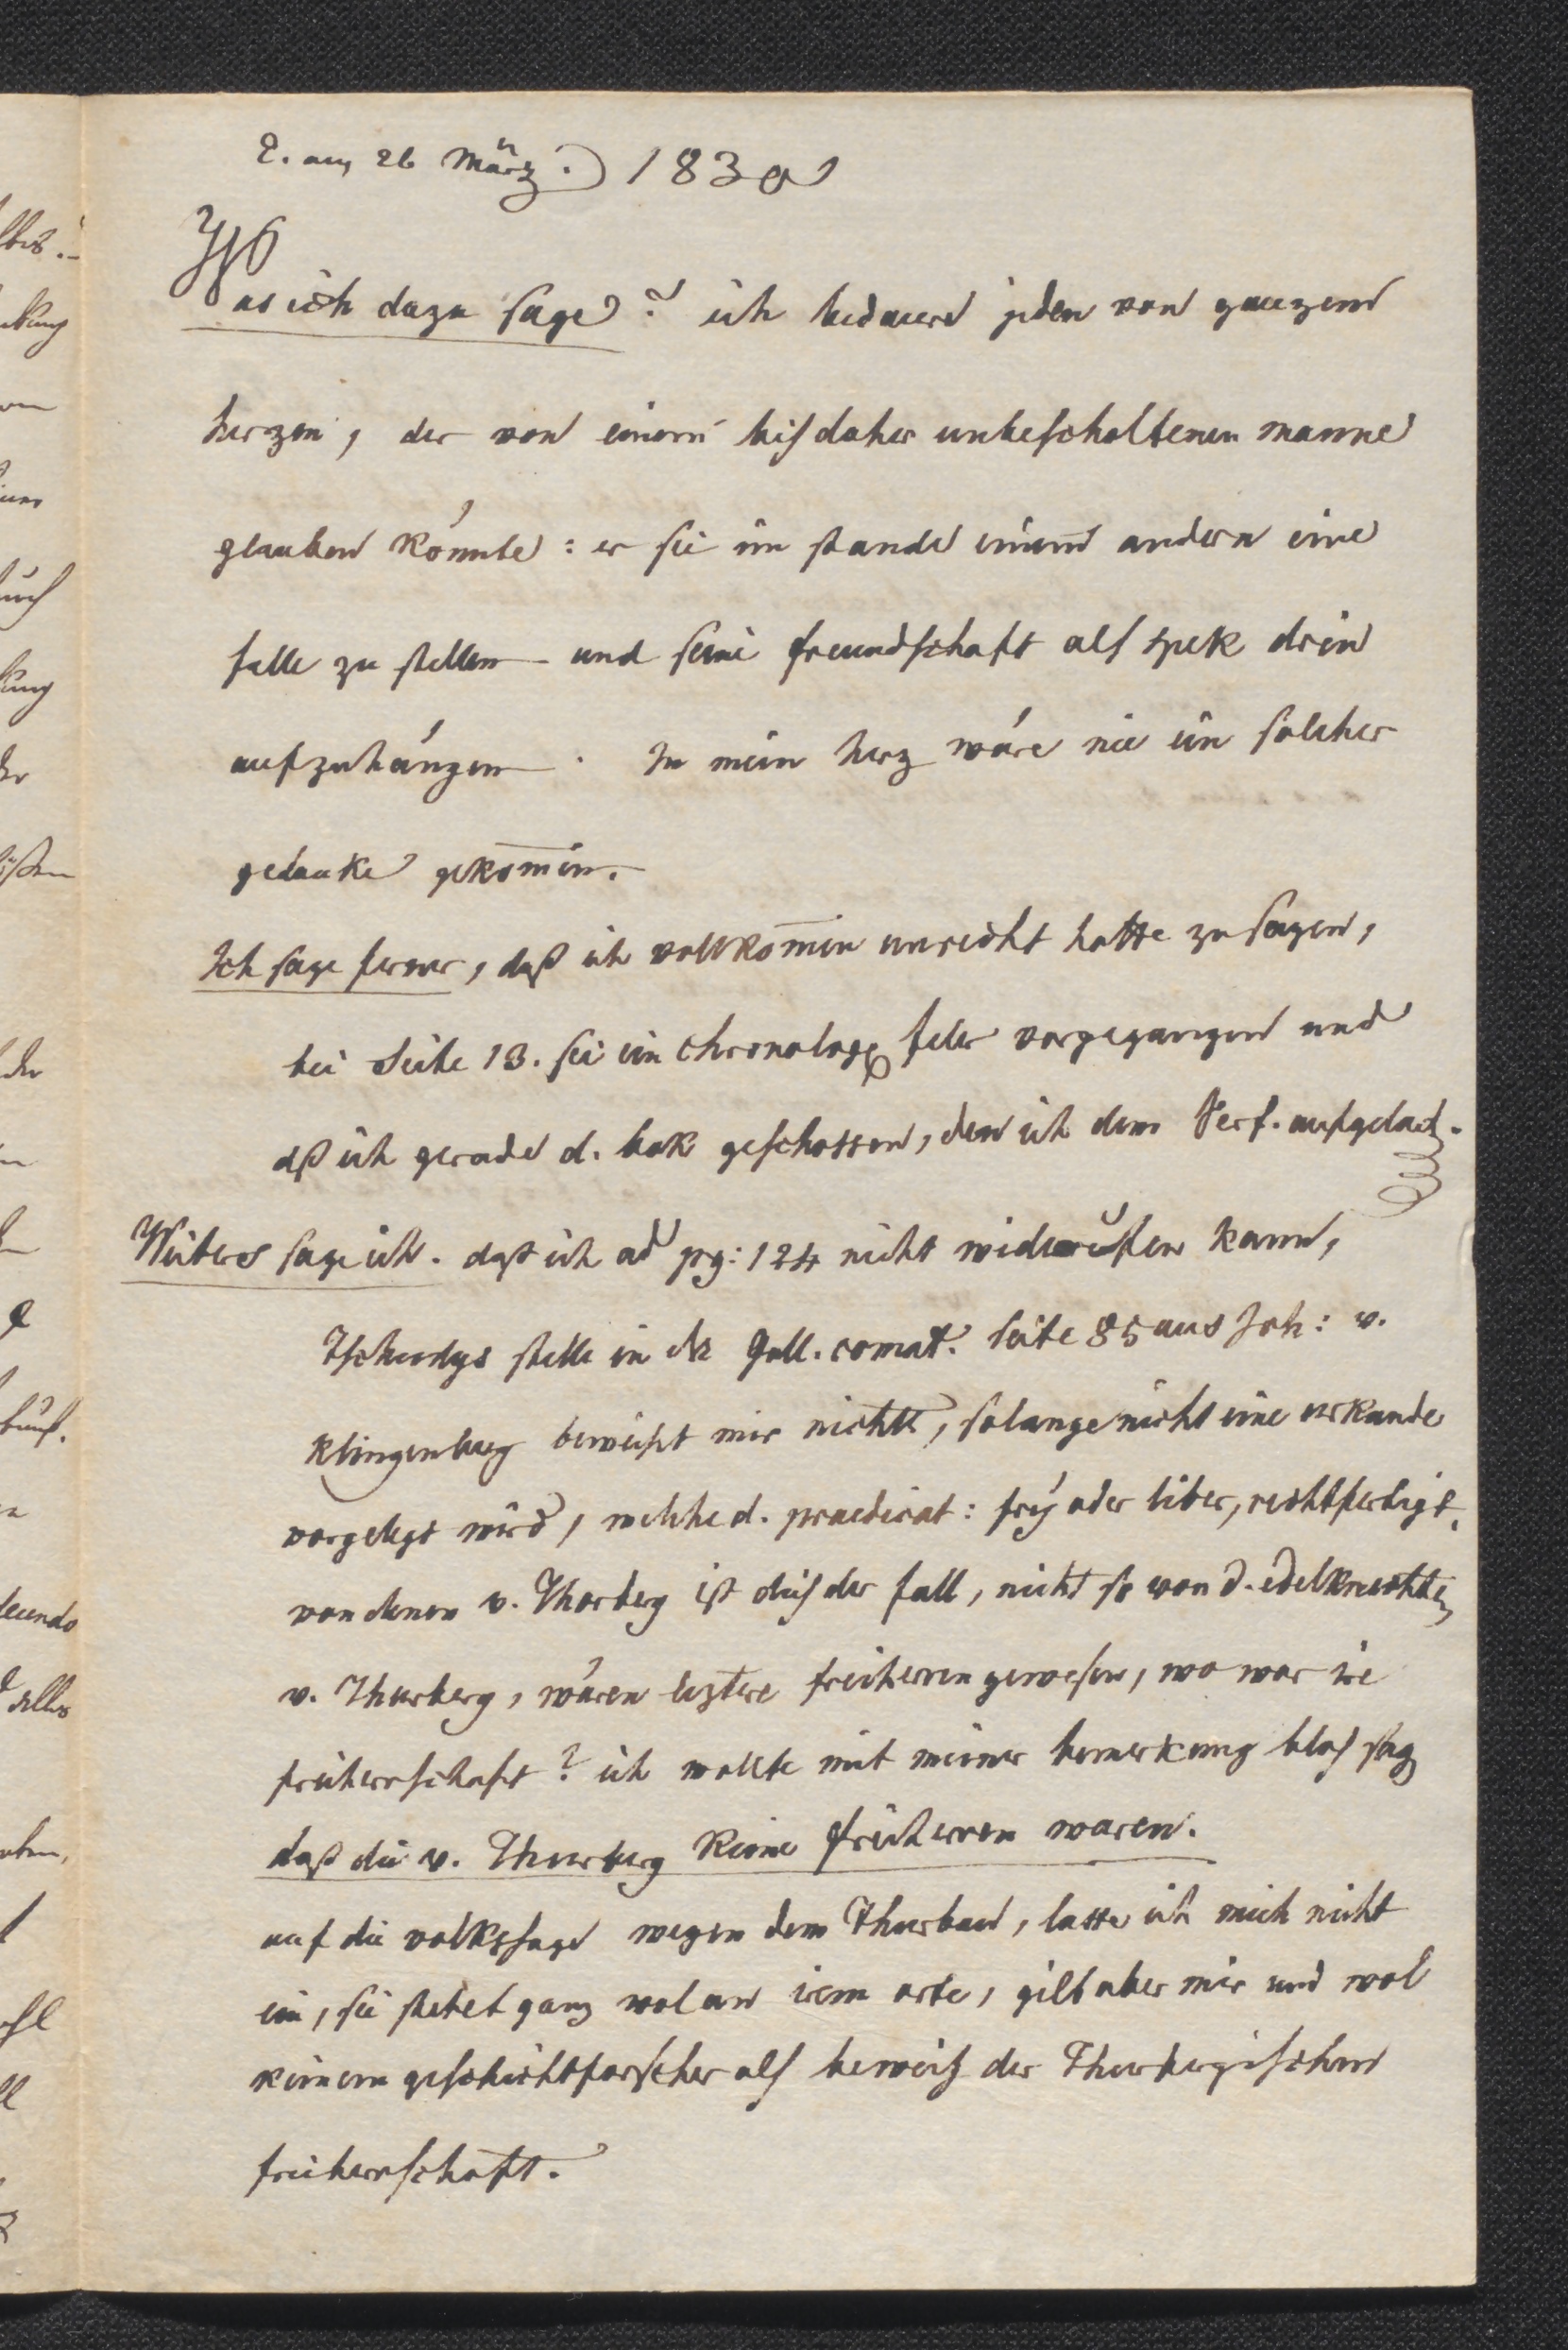 E. am 26 März. 1830
Was ich dazu sage? ich bedaure jeden von ganzem
herzen, der von einem bisdaher unbescholtenen manne
glauben könnte: er sei im stande einem andern eine
falle zu stellen – und seine freundschaft als spek drin
aufzuhängen. In mein herz wäre nie ein solcher
gedanke gekom̄en.
Ich sage ferner, daß ich vollkom̄en unrecht hatte zu sagen,
bei Seite 13. sei ein chronolog. feler vorgegangen und
dß ich gerade d. bok geschossen, den ich dem Verf. aufgelad.
Weiters sage ich. daß ich ad pg: 124 nicht widerrufen kann,
Tschudys stelle in der Gall. comat. seite 85 aus Joh: v.
Klingenberg beweist mir nichts, solange nicht eine urkunde
vorgelegt wird, welche d. praedicat: frÿ oder liber, rechtfertigt,
von denen v. Thorberg ist dis der fall, nicht so von d. edelknechten
v. Thurberg, wären leztere freiherren gewesen, wo war ire
freiherrschaft? ich wollte mit meiner bemerkung blos sag
daß die v. Thurberg keine freiherren waren.
auf die volkssage wegen dem Thurban, lasse ich mich nicht
ein, sie stehet ganz wol an irem orte, gilt aber mir und wol
keinem geschichtforscher als beweis der Thurbergischen
freiherrschaft.
lbst.
ung
der
cundo